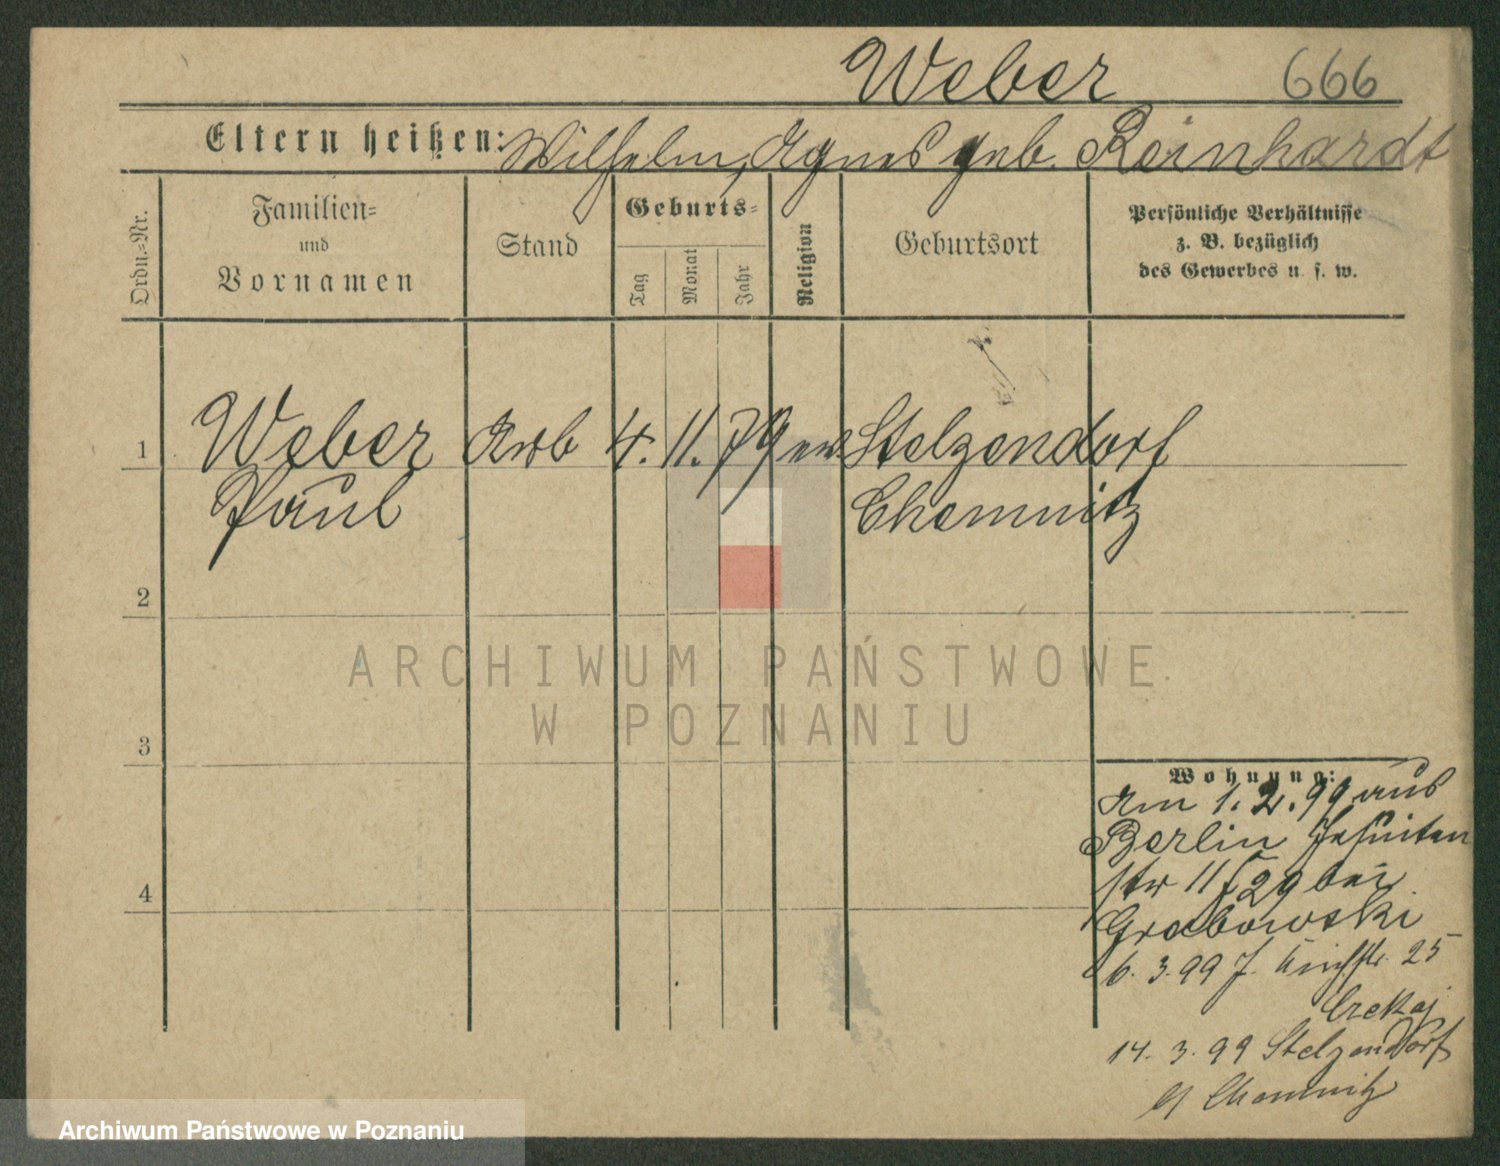 Weber 666
Eltern heißen: Wilhelm, Agnes geb. Reinhardt
Ordn.-Nr.
Familien-
und
Vornamen
Stand
Geburts-
Tag
Monat
Jahr
Religion
Geburtsort
Persönliche Verhältnisse
z. B. bezüglich
des Gewerbes u. s. w.
1 Weber Arb 4. 11. 79 ev. Stelzendorf
Paul Chemnitz
2
ARCHIWUM PAŃSTWOWE
W POZNANIU
3
4
Wohnung:
Am 1. 2. 99 aus
Berlin Jesuiten
str 11 / 29 bei
Grabowski
6. 3. 99 25
14. 3. 99 Stelzendorf
Chemnitz
Archiwum Państwowe w Poznaniu